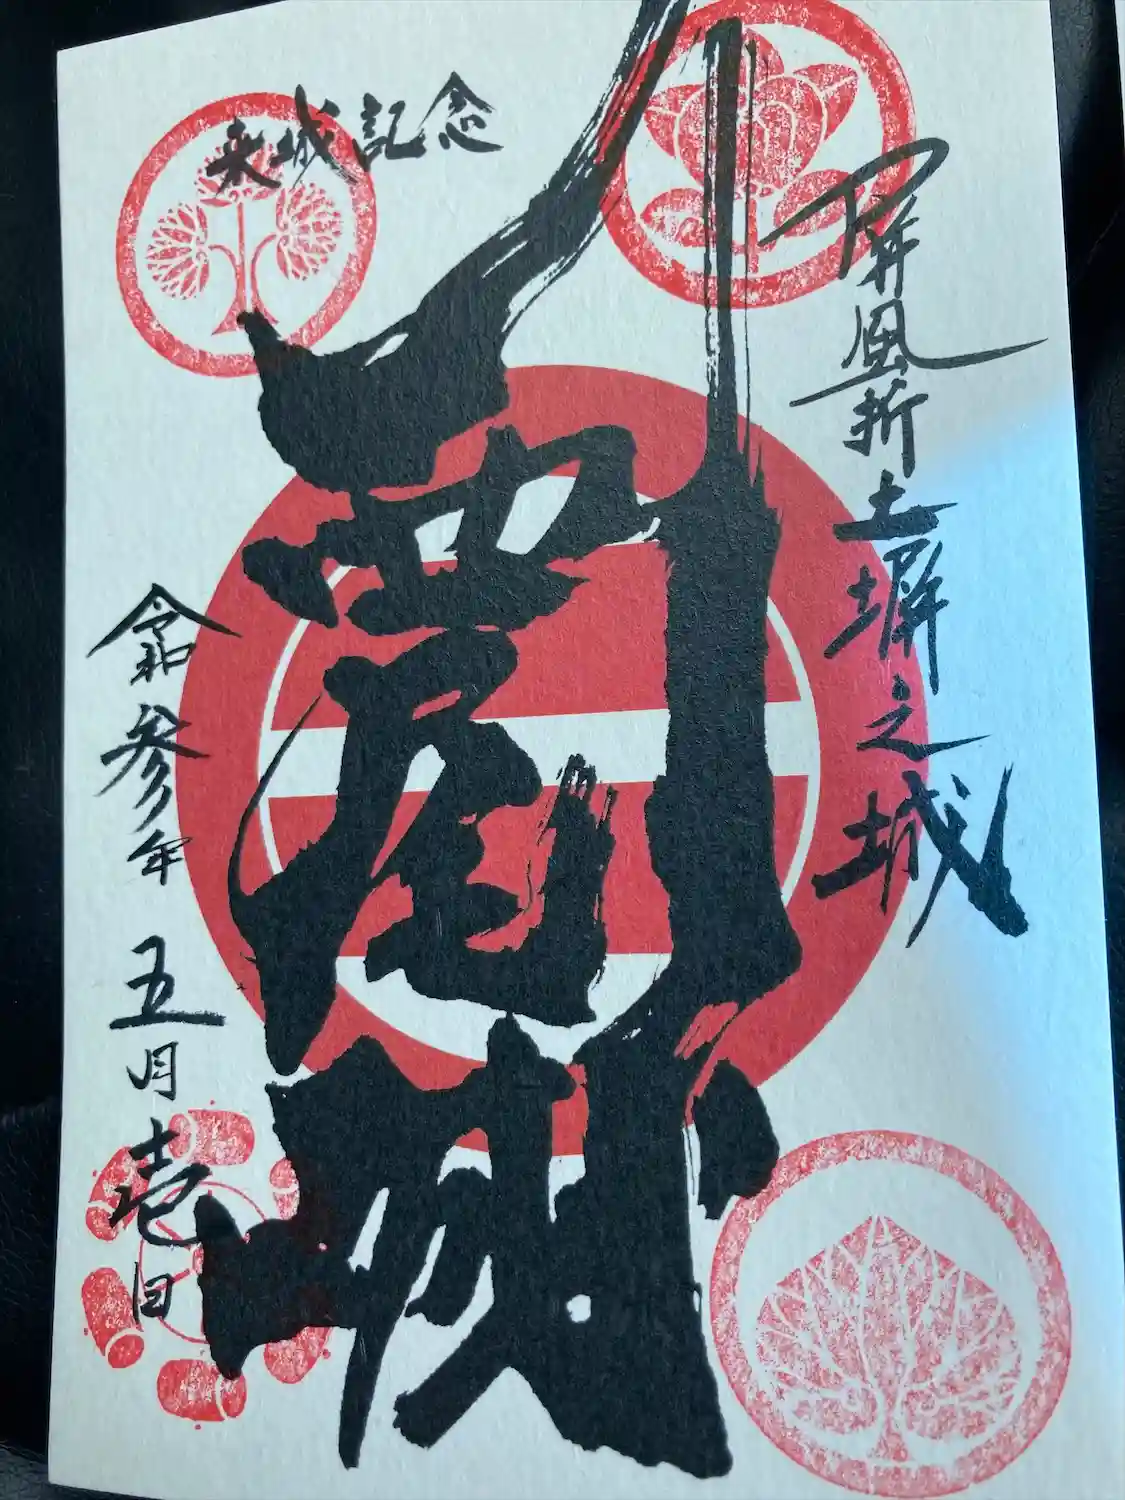 屏風折土塀之城
西尾城
来城記念
令和参年五月壱日